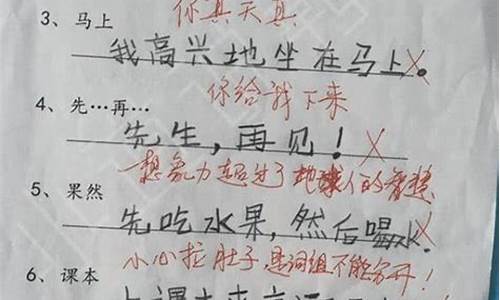 你真天真
3、马上
我高兴地坐在马上。
你给我下来
4、先…再…
先生，再见！
想象力超过了地球人的智慧
5、果然
先吃水果，然后喝水。
小心拉肚子，是词组不能分开！
6、课本
上课本来应该